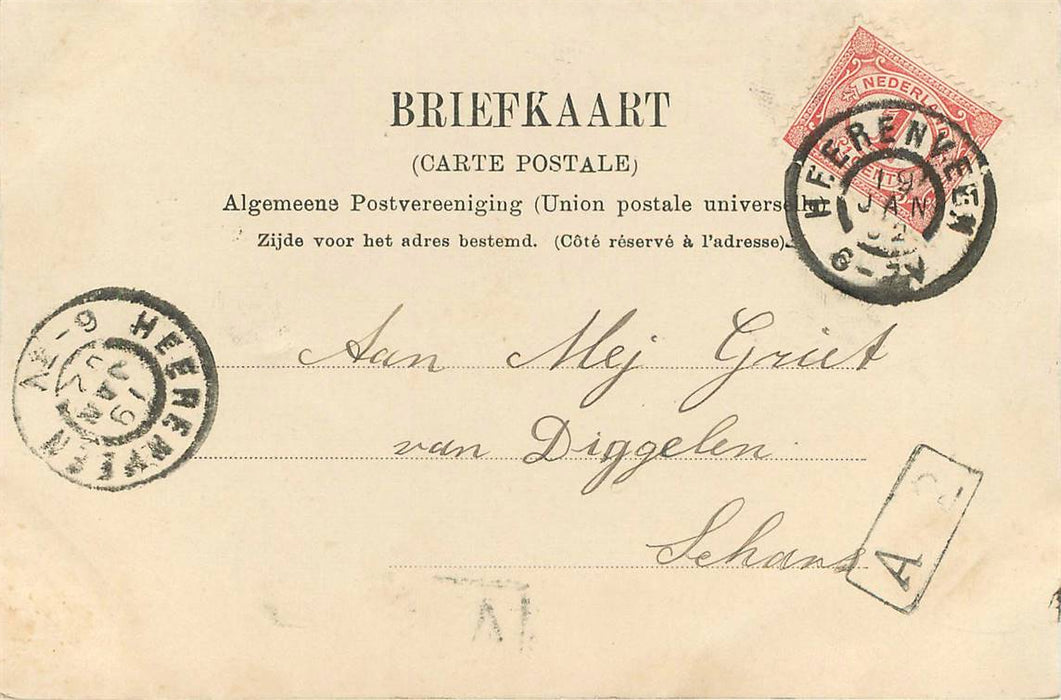 BRIEFKAART
(CARTE POSTALE)
Algemeene Postvereeniging (Union postale universelle)
Zijde voor het adres bestemd. (Côté réservé à l'adresse).
NEDERLAND
HEERENVEEN
19
JAN
02
6-9 N
HEERENVEEN
19
JAN
02
6-9 N
Aan Mej Griet
van Diggelen.
Schans
A 2